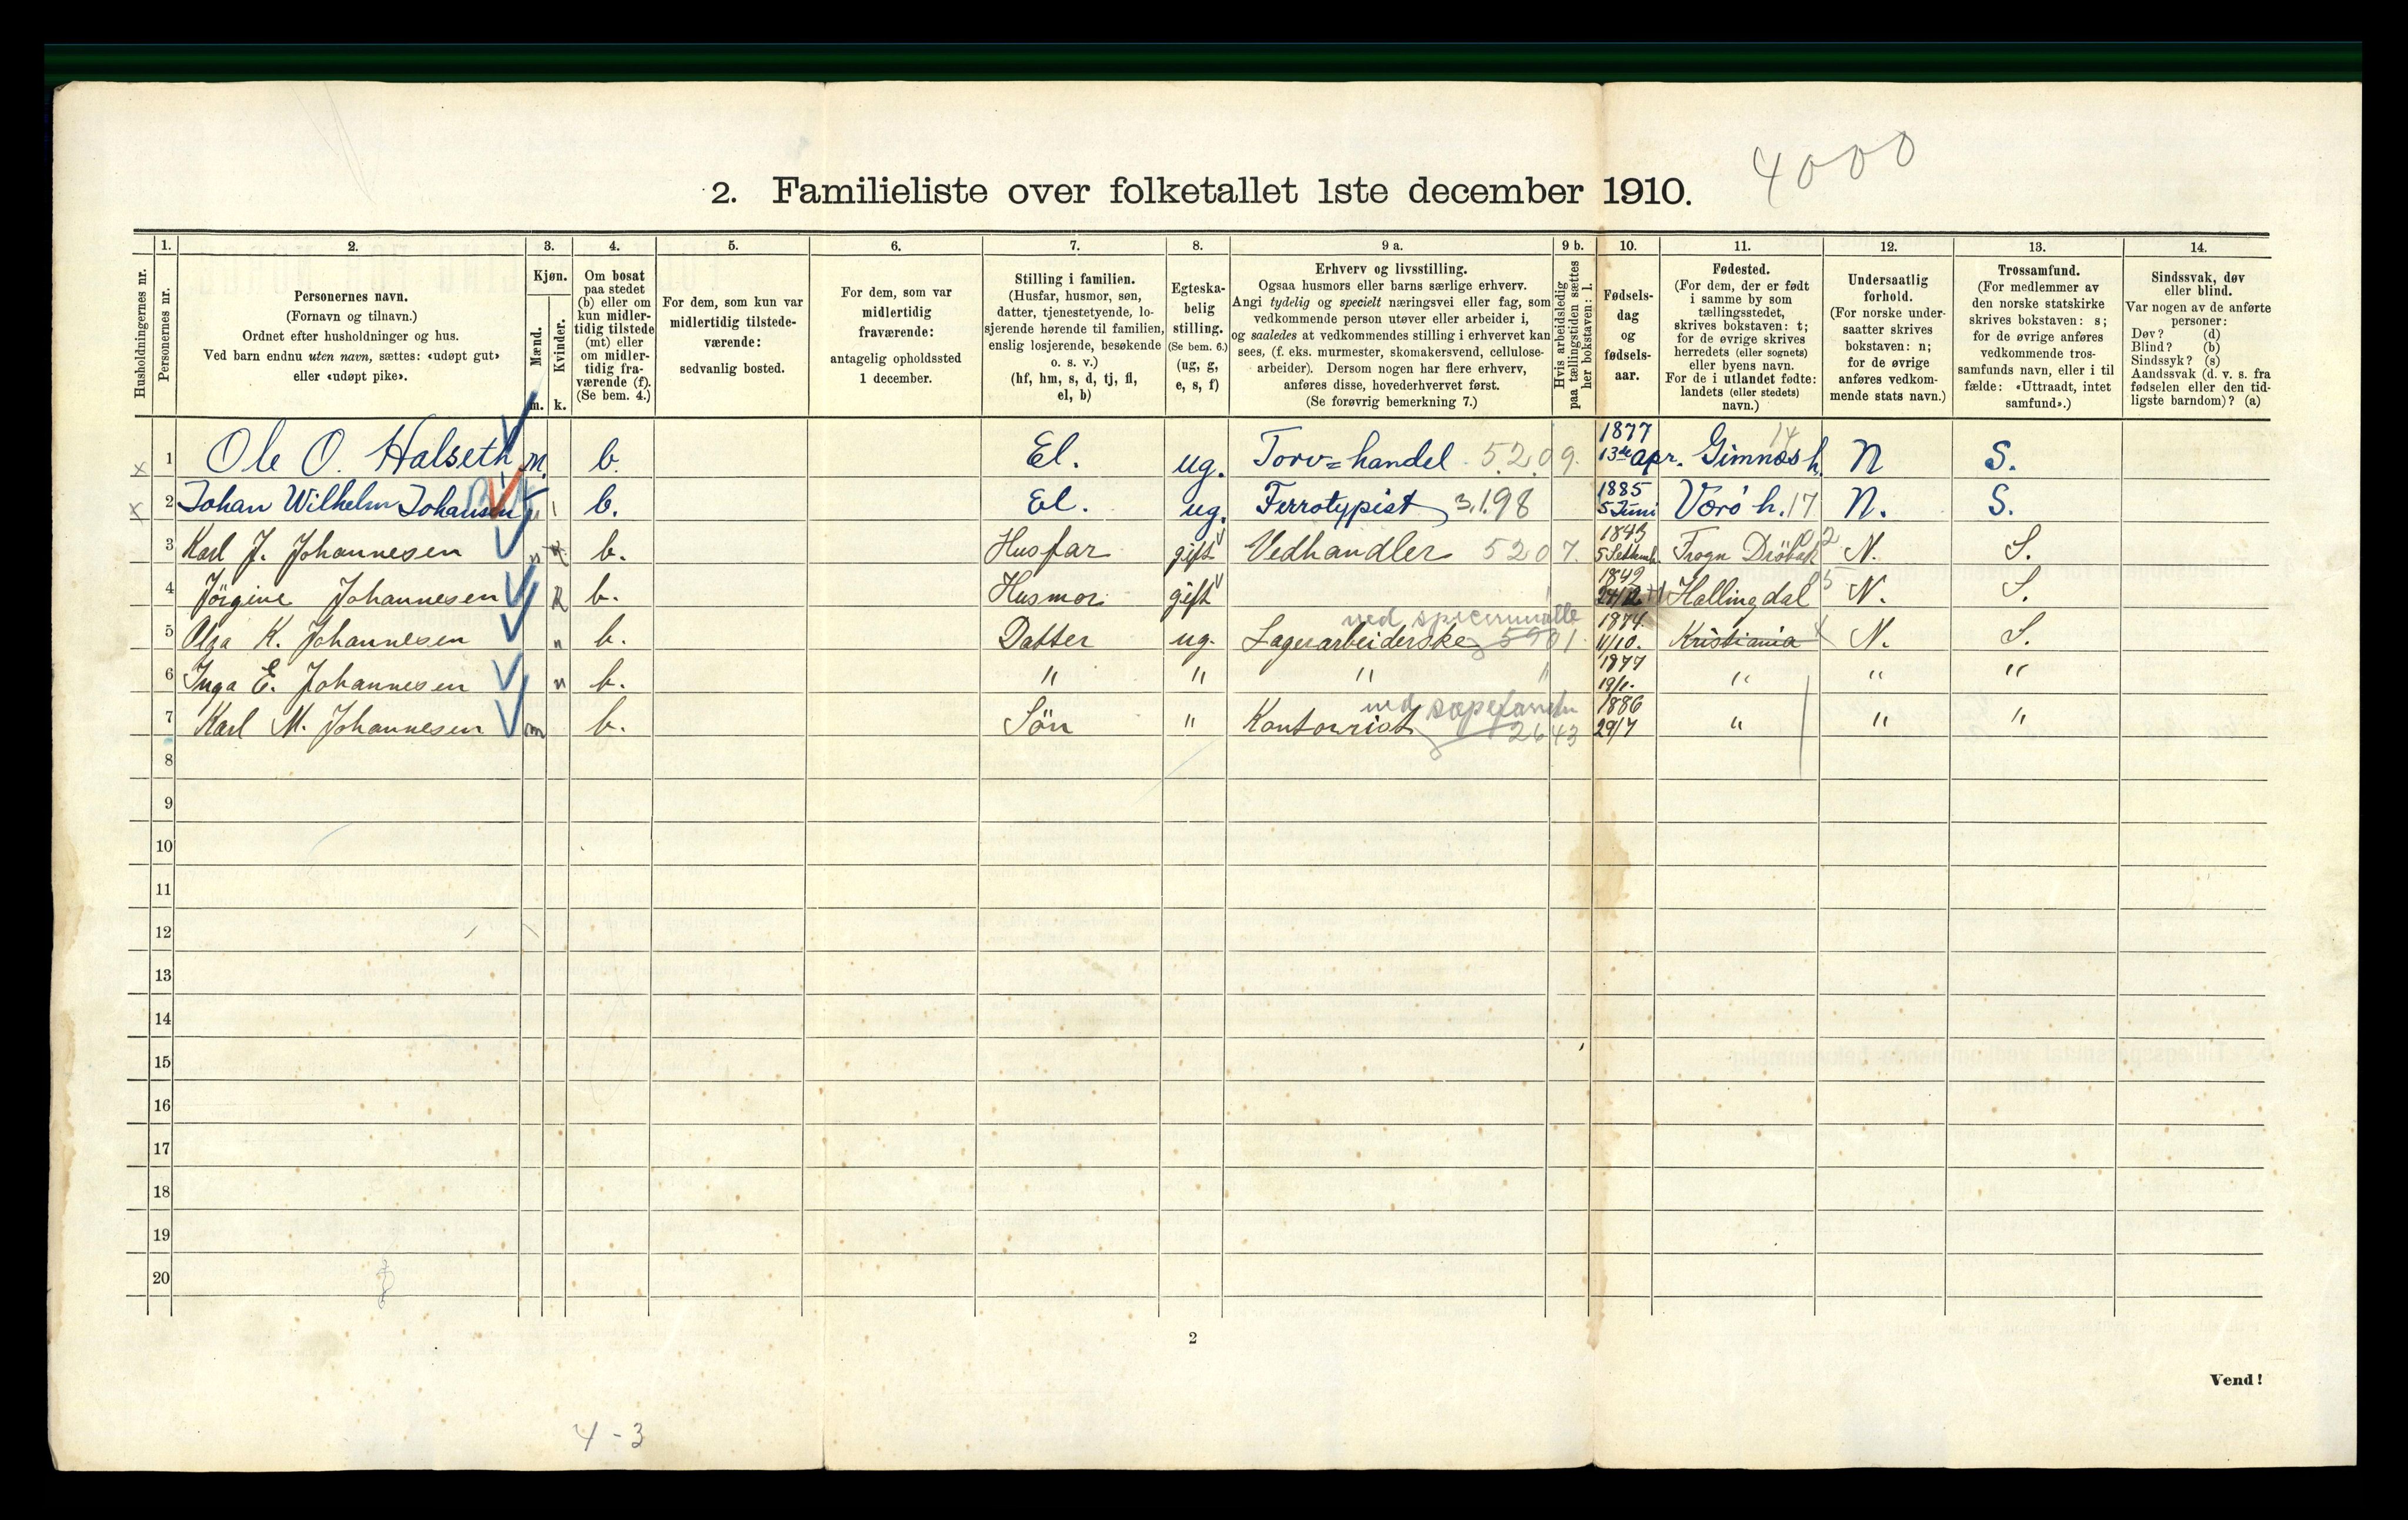 4000
2. Familieliste over folketallet 1ste december 1910.
1. 2. 3. 4. 5. 6. 7. 8. 9 a. 9 b. 10. 11. 12. 13. 14.
Husholdningernes nr.
Personernes nr.
Personernes navn.
(Fornavn og tilnavn.)
Ordnet efter husholdninger og hus.
Ved barn endnu uten navn, sættes: «udøpt gut»
eller «udøpt pike».
Kjøn.
Mænd.
Kvinder.
m. k.
Om bosat
paa stedet
(b) eller om
kun midler-
tidig tilstede
(mt) eller
om midler-
tidig fra-
værende (f).
(Se bem. 4.)
For dem, som kun var
midlertidig tilstede-
værende:
sedvanlig bosted.
For dem, som var
midlertidig
fraværende:
antagelig opholdssted
1 december.
Stilling i familien.
(Husfar, husmor, søn,
datter, tjenestetyende, lo-
sjerende hørende til familien,
enslig losjerende, besøkende
o. s. v.)
(hf, hm, s, d, tj, fl,
el, b)
Egteska-
belig
stilling.
(Se bem. 6.)
(ug, g,
e, s, f)
Erhverv og livsstilling.
Ogsaa husmors eller barns særlige erhverv.
Angi tydelig og specielt næringsvei eller fag, som
vedkommende person utøver eller arbeider i,
og saaledes at vedkommendes stilling i erhvervet kan
sees, (f. eks. murmester, skomakersvend, cellulose-
arbeider). Dersom nogen har flere erhverv,
anføres disse, hovederhvervet først.
(Se forøvrig bemerkning 7.)
Hvis arbeidsledig
paa tællingstiden sættes
her bokstaven: l.
Fødsels-
dag
og
fødsels-
aar.
Fødested.
(For dem, der er født
i samme by som
tællingsstedet,
skrives bokstaven: t;
for de øvrige skrives
herredets (eller sognets)
eller byens navn.
For de i utlandet fødte:
landets (eller stedets)
navn.)
Undersaatlig
forhold.
(For norske under-
saatter skrives
bokstaven: n;
for de øvrige
anføres vedkom-
mende stats navn.)
Trossamfund.
(For medlemmer av
den norske statskirke
skrives bokstaven: s;
for de øvrige anføres
vedkommende tros-
samfunds navn, eller i til
fælde: «Uttraadt, intet
samfund».)
Sindssvak, døv
eller blind.
Var nogen av de anførte
personer:
Døv? (d)
Blind? (b)
Sindssyk? (s)
Aandssvak (d. v. s. fra
fødselen eller den tid-
ligste barndom)? (a)
x 1 Ole O. Halseth m. b. El. ug. Torv=handel 5209. 1877 13de apr. Gimnæs h. 14 N S.
x 2 Johan Wilhelm Johansen b. El. ug. Ferrotypist 3198 1885 5 Juni Værö h. 17 N. S.
3 Karl J. Johannesen b. Husfar gift Vedhandler 5207. 1843 5 Septemb. Frogn Dröbak 2 N. S.
4 Jörgine Johannesen k b. Husmor gift 1849 24/12 Hallingdal 5 N. S.
5 Olga K. Johannesen " b. Datter ug. Lagerarbeiderske 5901 1874 11/10. Kristiania N. S.
6 Inga E. Johannesen " b. " " " " 1877 19/1. " " "
7 Karl M. Johannesen m b. Sön " Kontorrist 2643 1886 29/7 " " "
8
9
10
11
12
13
14
15
16
17
18
19
20
2
Vend!
4-3